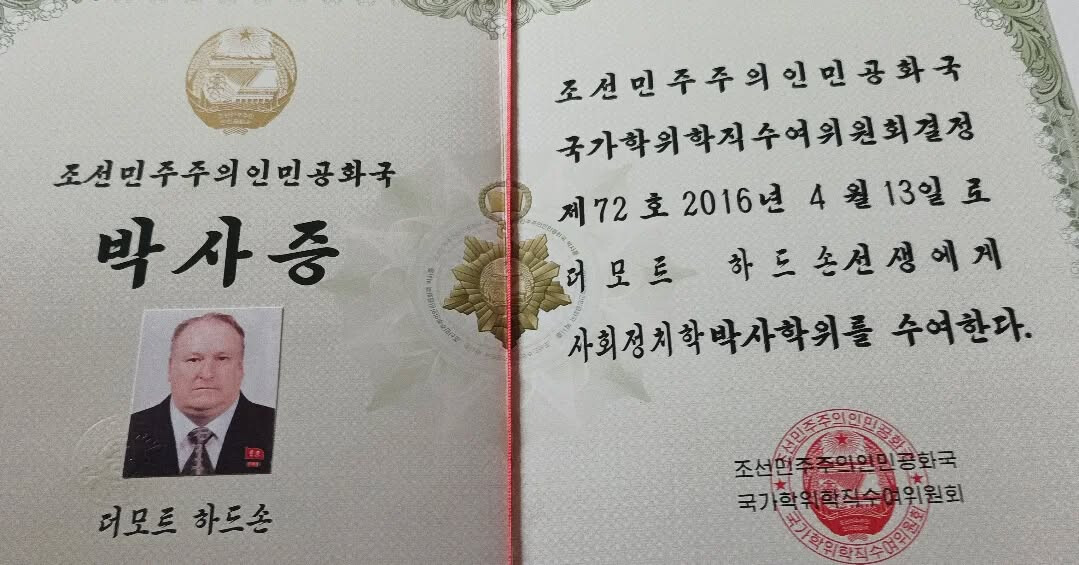 조선민주주의인민공화국
박사증
더모트 하드손
조선민주주의인민공화국
국가학위학직수여위원회결정
제72호 2016년 4월 13일로
더모트 하드손선생에게
사회정치학박사학위를 수여한다.
조선민주주의인민공화국
국가학위학직수여위원회
조선민주주의인민공화국
국가학위학직수여위원회